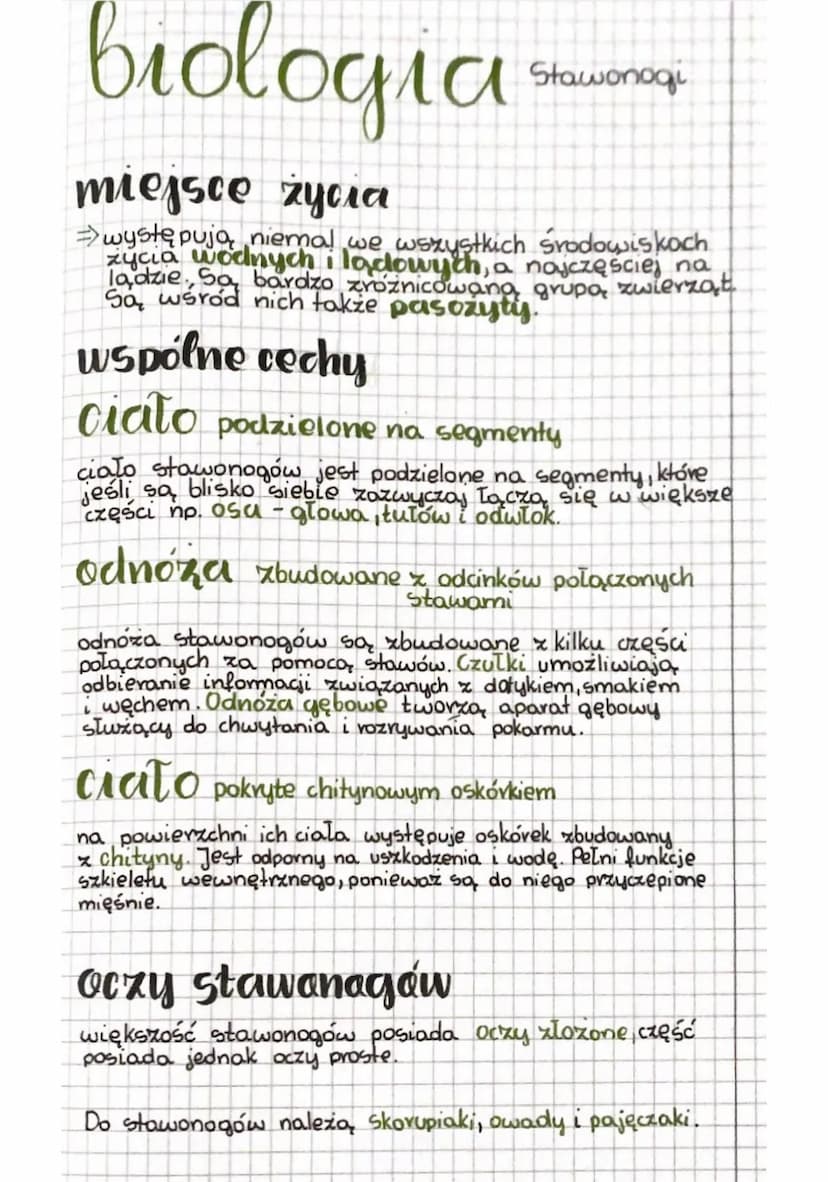 biologia Stawonogi
miejsce życia
⇒ występują niemal we wszystkich środowiskach
życia wodnych i lądowych, a najczęściej na
lądzie. Są bardzo zróżnicowaną grupą zwierząt.
Są wśród nich także pasożyty.
wspólne cechy
ciało podzielone na segmenty
ciało stawonogów jest podzielone na segmenty, które
jeśli są blisko siebie zazwyczaj łączą się w większe
części np. osa - głowa, tułów i odwłok.
odnóża zbudowane z odcinków połączonych
stawami
odnóża stawonogów są zbudowane z kilku części
połączonych za pomocą stawów. Czułki umożliwiają
odbieranie informacji związanych z dotykiem, smakiem
i węchem. Odnóża gębowe tworzą aparat gębowy
służący do chwytania i rozrywania pokarmu.
ciało pokryte chitynowym oskórkiem
na powierzchni ich ciała występuje oskórek zbudowany
z chityny. Jest odporny na uszkodzenia i wodę. Pełni funkcje
szkieletu wewnętrznego, ponieważ są do niego przyczepione
mięśnie.
oczy stawonogów
większość stawonogów posiada oczy złożone, część
posiada jednak oczy proste.
Do stawonogów należą skorupiaki, owady i pajęczaki.